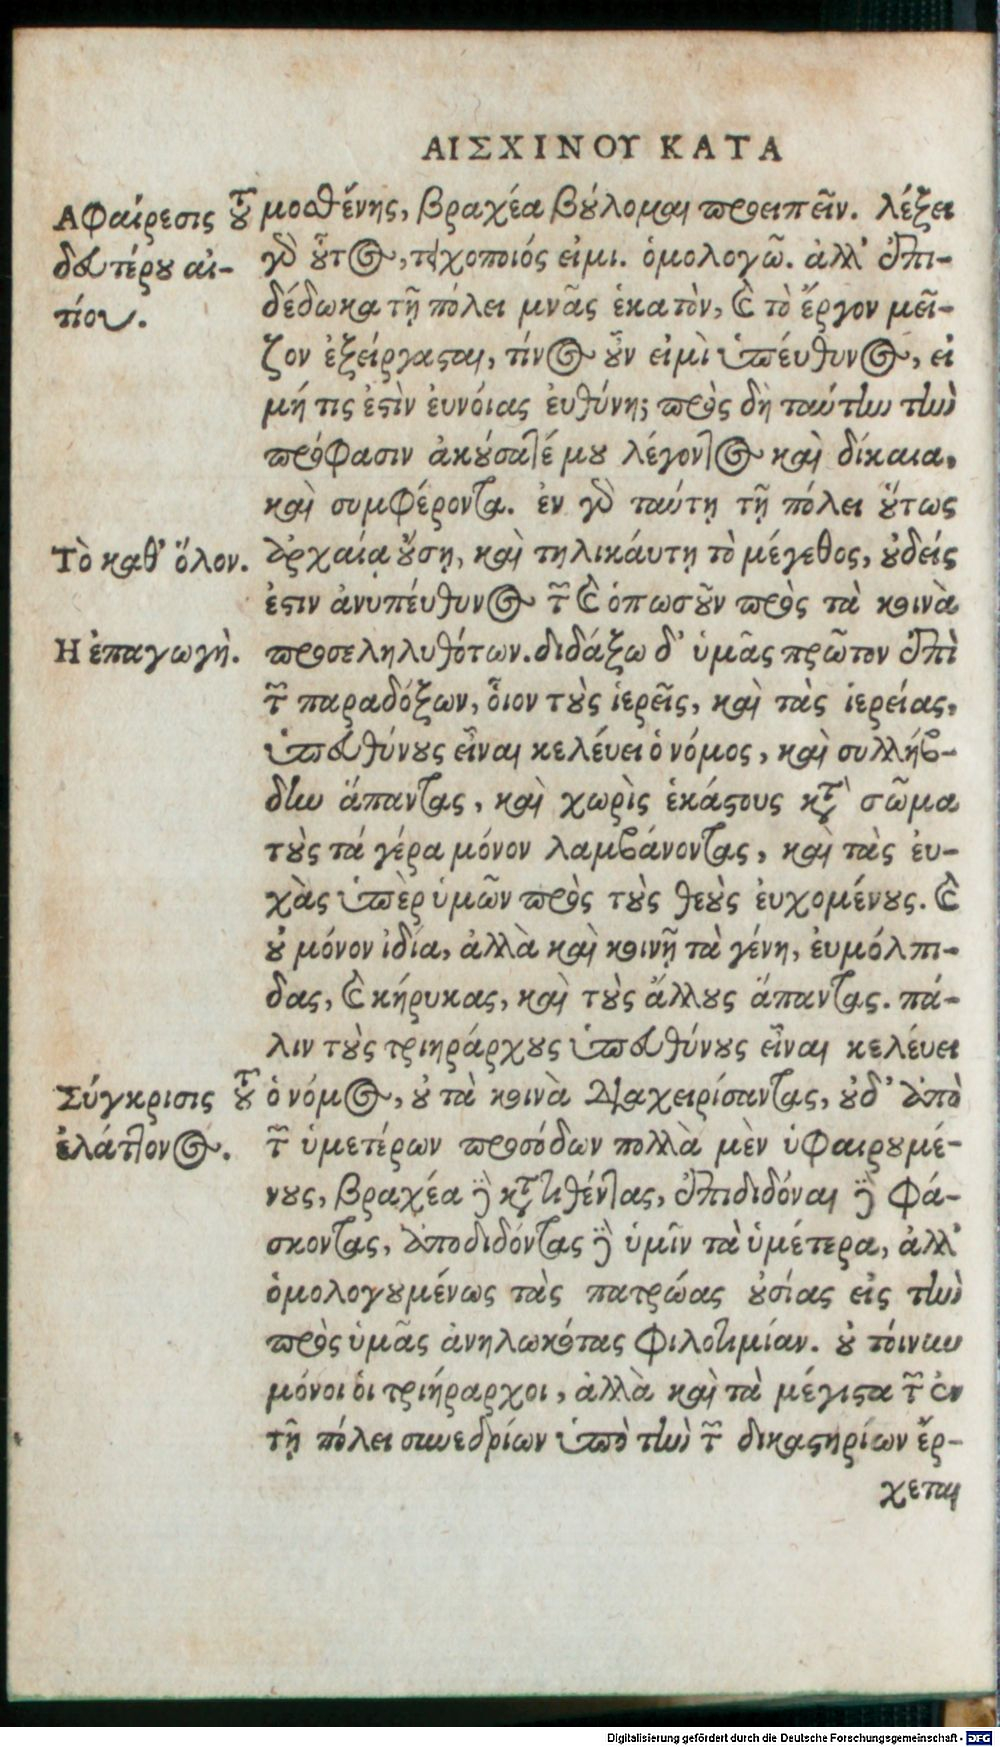 ΑΙΣΧΙΝΟΥ ΚΑΤΑ
Αφαίρεσις τοῦ
δευτέρου αἰ-
τίου.
μοσθένης, βραχέα βούλομαι προειπεῖν. λέξει
γὰρ οὗτος, τειχοποιός εἰμι. ὁμολογῶ. ἀλλ' ἐπι-
δέδωκα τῇ πόλει μνᾶς ἑκατὸν, καὶ τὸ ἔργον μεῖ-
ζον ἐξείργασται, τίνος οὖν εἰμὶ ὑπέυθυνος, εἰ
μή τις ἐστὶν ἐυνόιας ἐυθύνη; πρὸς δὴ ταύτην τὴν
πρόφασιν ἀκούσατέ μου λέγοντος καὶ δίκαια,
καὶ συμφέροντα. ἐν γὰρ ταύτῃ τῇ πόλει οὕτως
Τὸ καθ' ὅλον.
ἀρχαίᾳ οὔσῃ, καὶ τηλικάυτῃ τὸ μέγεθος, οὐδείς
ἐστιν ἀνυπέυθυνος τῶν καὶ ὁπωσοῦν πρὸς τὰ κοινὰ
Ἡ ἐπαγωγὴ.
προσεληλυθότων. διδάξω δ' ὑμᾶς πρῶτον ἐπὶ
τῶν παραδόξων, οἷον τοὺς ἱερεῖς, καὶ τὰς ἱερείας,
ὑπευθύνους εἶναι κελέυει ὁ νόμος, καὶ συλλήβ-
δην ἅπαντας, καὶ χωρὶς ἑκάστους κατὰ σῶμα
τοὺς τά γέρα μόνον λαμβάνοντας, καὶ τὰς ἐυ-
χὰς ὑπὲρ ὑμῶν πρὸς τοὺς θεοὺς ἐυχομένους. καὶ
οὐ μόνον ἰδία, ἀλλὰ καὶ κοινῇ τὰ γένη, ἐυμόλπι-
δας, καὶ κήρυκας, καὶ τοὺς ἄλλους ἅπαντας. πά-
λιν τοὺς τριηράρχους ὑπευθύνους εἶναι κελέυει
Σύγκρισις τοῦ
ἐλάττονος.
ὁ νόμος, οὐ τὰ κοινὰ διαχειρίσαντας, οὐδ' ἀπὸ
τῶν ὑμετέρων προσόδων πολλὰ μὲν ὑφαιρουμέ-
νους, βραχέα δὲ κατατιθέντας, ἐπιδιδόναι δὲ φά-
σκοντας, ἀποδιδόντας δὲ ὑμῖν τὰ ὑμέτερα, ἀλλ'
ὁμολογουμένως τὰς πατρώας οὐσίας εἰς τὴν
πρὸς ὑμᾶς ἀνηλωκότας φιλοτιμίαν. οὐ τοίνυν
μόνοι οἱ τριήραρχοι, ἀλλὰ καὶ τὰ μέγιστα τῶν ἐν
τῇ πόλει συνεδρίων ὑπὸ τὴν τῶν δικαστηρίων ἔρ-
χεται
Digitalisierung gefördert durch die Deutsche Forschungsgemeinschaft - DFG